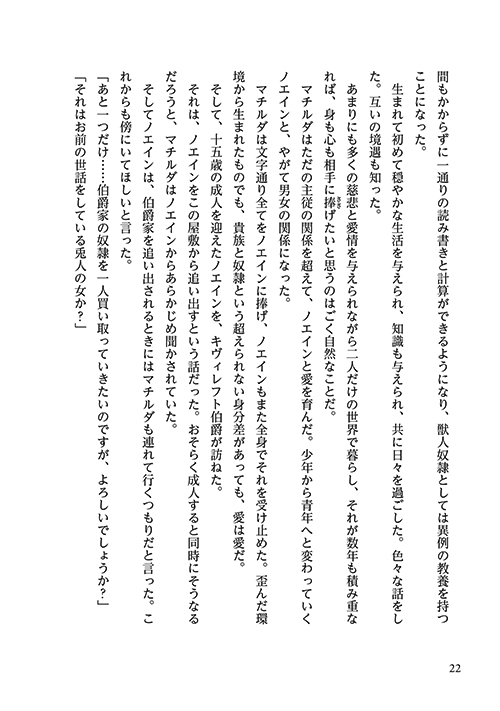 間もかからずに一通りの読み書きと計算ができるようになり、獣人奴隷としては異例の教養を持つ
ことになった。
　生まれて初めて穏やかな生活を与えられ、知識も与えられ、共に日々を過ごした。色々な話をし
た。互いの境遇も知った。
　あまりにも多くの慈悲と愛情を与えられながら二人だけの世界で暮らし、それが数年も積み重な
れば、身も心も相手に捧げたいと思うのはごく自然なことだ。
　マチルダはただの主従の関係を超えて、ノエインと愛を育んだ。少年から青年へと変わっていく
ノエインと、やがて男女の関係になった。
　マチルダは文字通り全てをノエインに捧げ、ノエインもまた全身でそれを受け止めた。歪んだ環
境から生まれたものでも、貴族と奴隷という超えられない身分差があっても、愛は愛だ。
　そして、十五歳の成人を迎えたノエインを、キヴィレフト伯爵が訪ねた。
　それは、ノエインをこの屋敷から追い出すという話だった。おそらく成人すると同時にそうなる
だろうと、マチルダはノエインからあらかじめ聞かされていた。
　そしてノエインは、伯爵家を追い出されるときにはマチルダも連れて行くつもりだと言った。こ
れからも傍にいてほしいと言った。
「あと一つだけ……伯爵家の奴隷を一人買い取っていきたいのですが、よろしいでしょうか？」
「それはお前の世話をしている兎人の女か？」
22